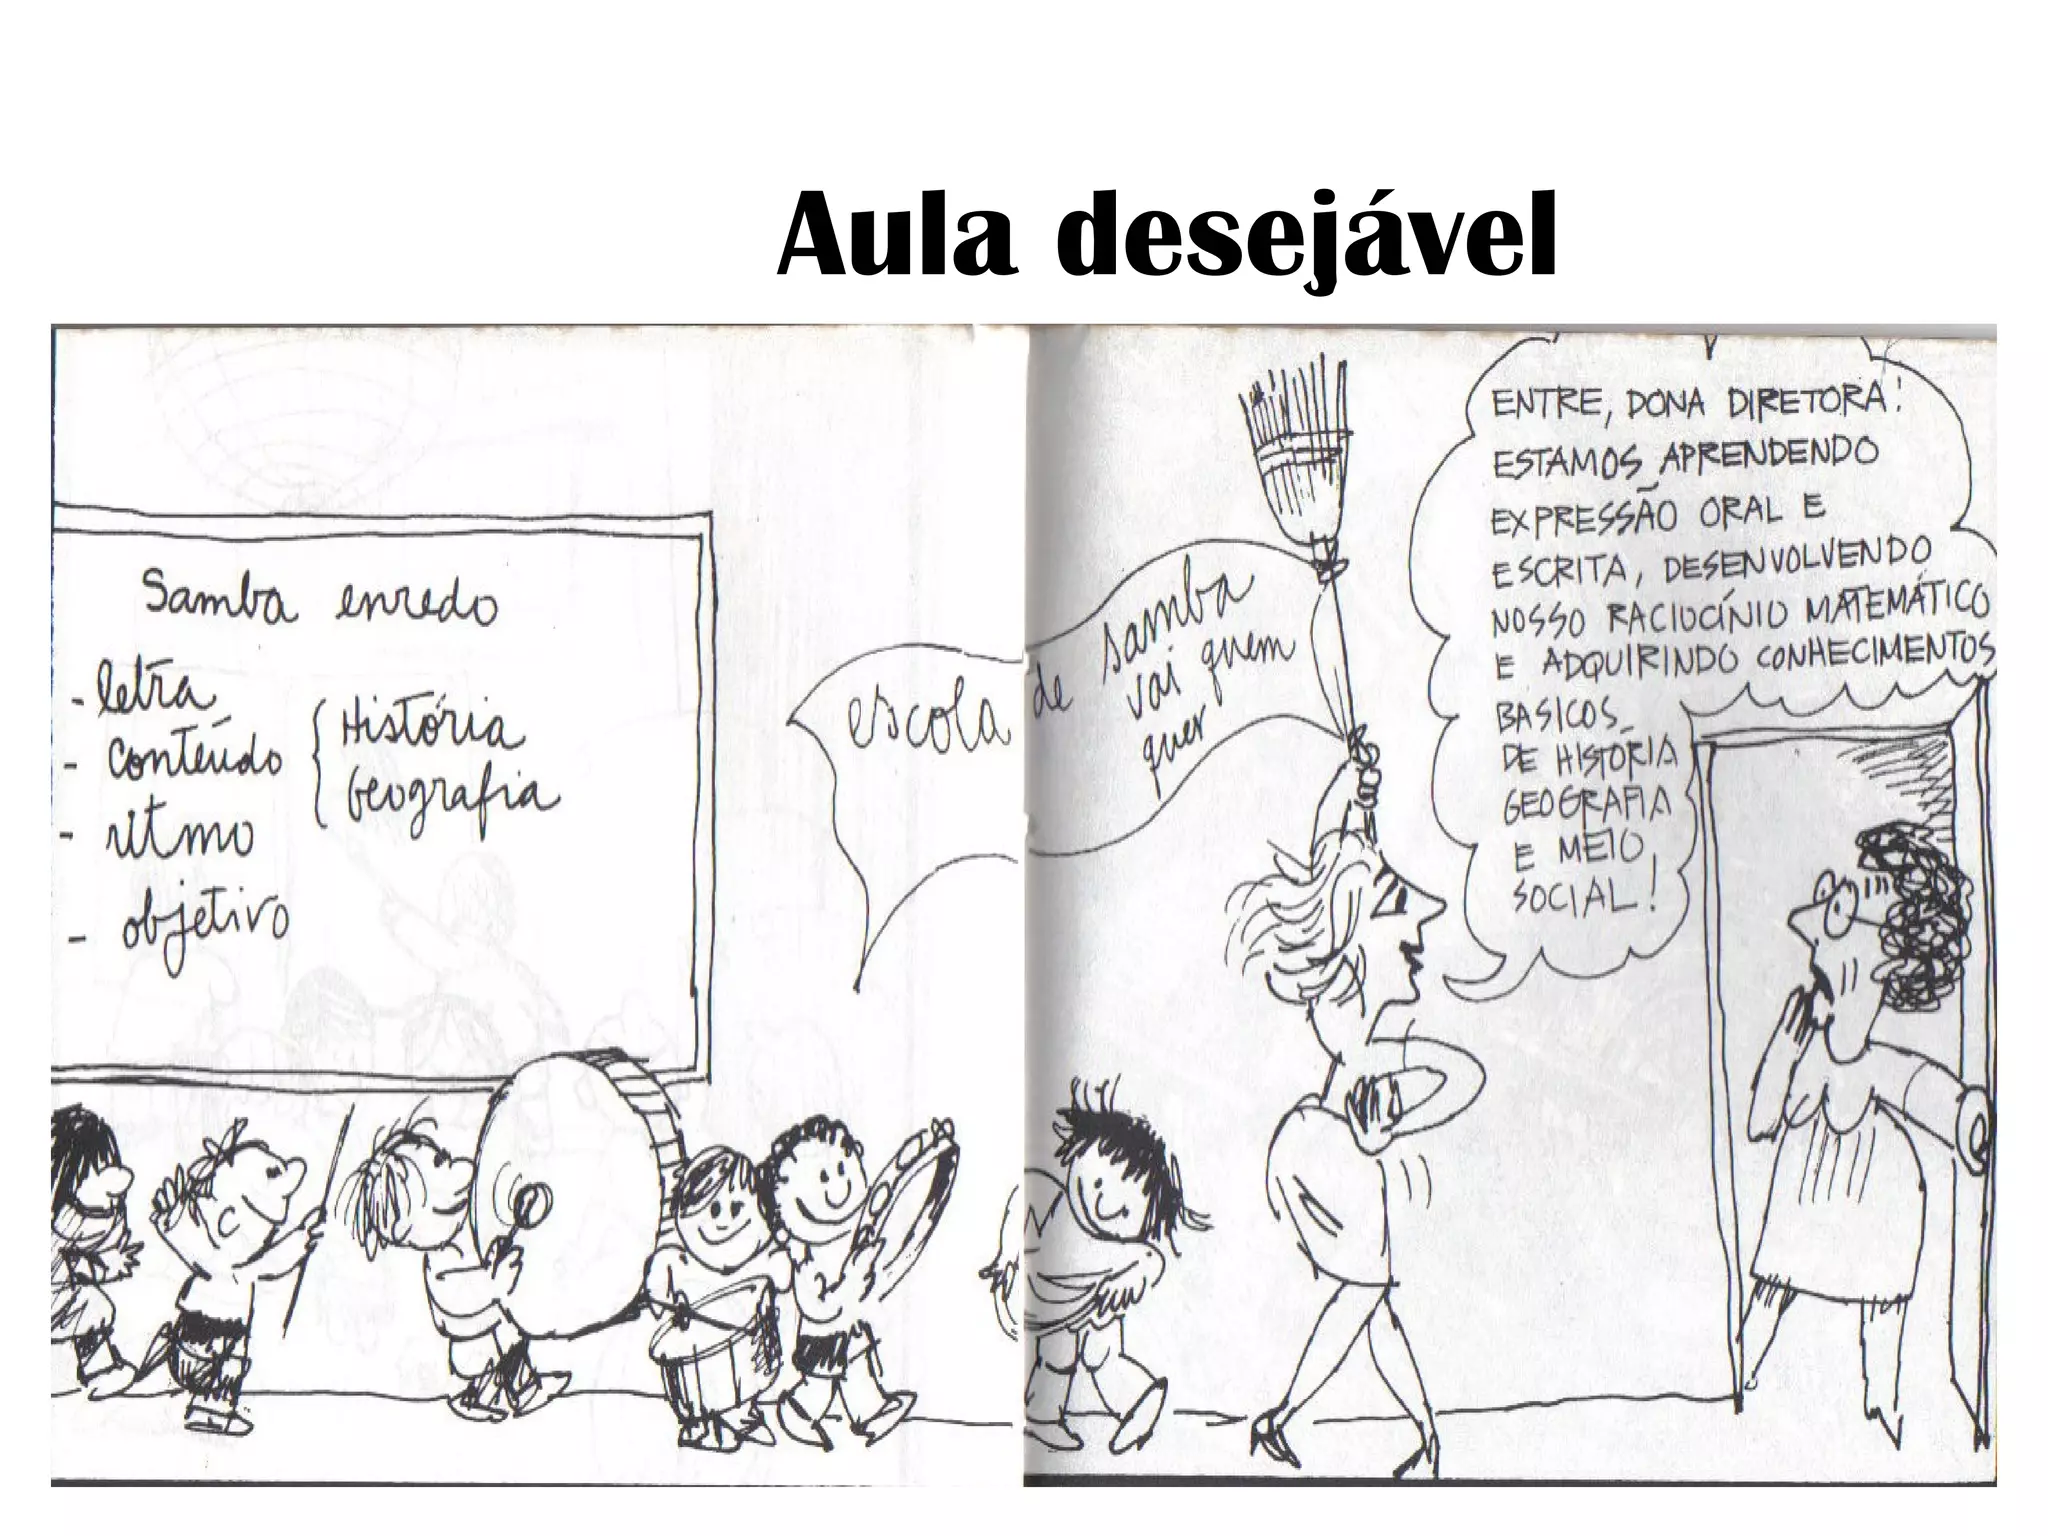 Aula desejável
Samba enredo
- letra
- conteúdo { História
Geografia
- ritmo
- objetivo
escola de samba
vai quem
quer
ENTRE, DONA DIRETORA!
ESTAMOS APRENDENDO
EXPRESSÃO ORAL E
ESCRITA, DESENVOLVENDO
NOSSO RACIOCÍNIO MATEMÁTICO
E ADQUIRINDO CONHECIMENTOS
BÁSICOS
DE HISTÓRIA
GEOGRAFIA
E MEIO
SOCIAL!